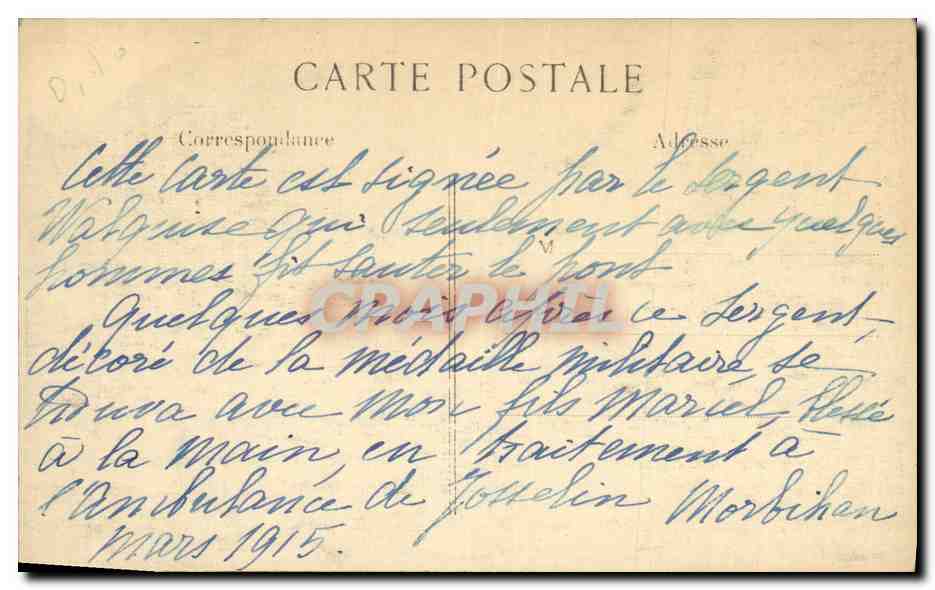 CARTE POSTALE
Correspondance
Adresse
Cette carte est signée par le sergent
qui seulement avec quelques
hommes fit sauter le pont
CRAPHIL
Quelques mois après ce sergent
décoré de la médaille militaire se
trouva avec mon fils Marcel, blessé
à la main, en traitement à
l'Ambulance de Josselin Morbihan
Mars 1915.